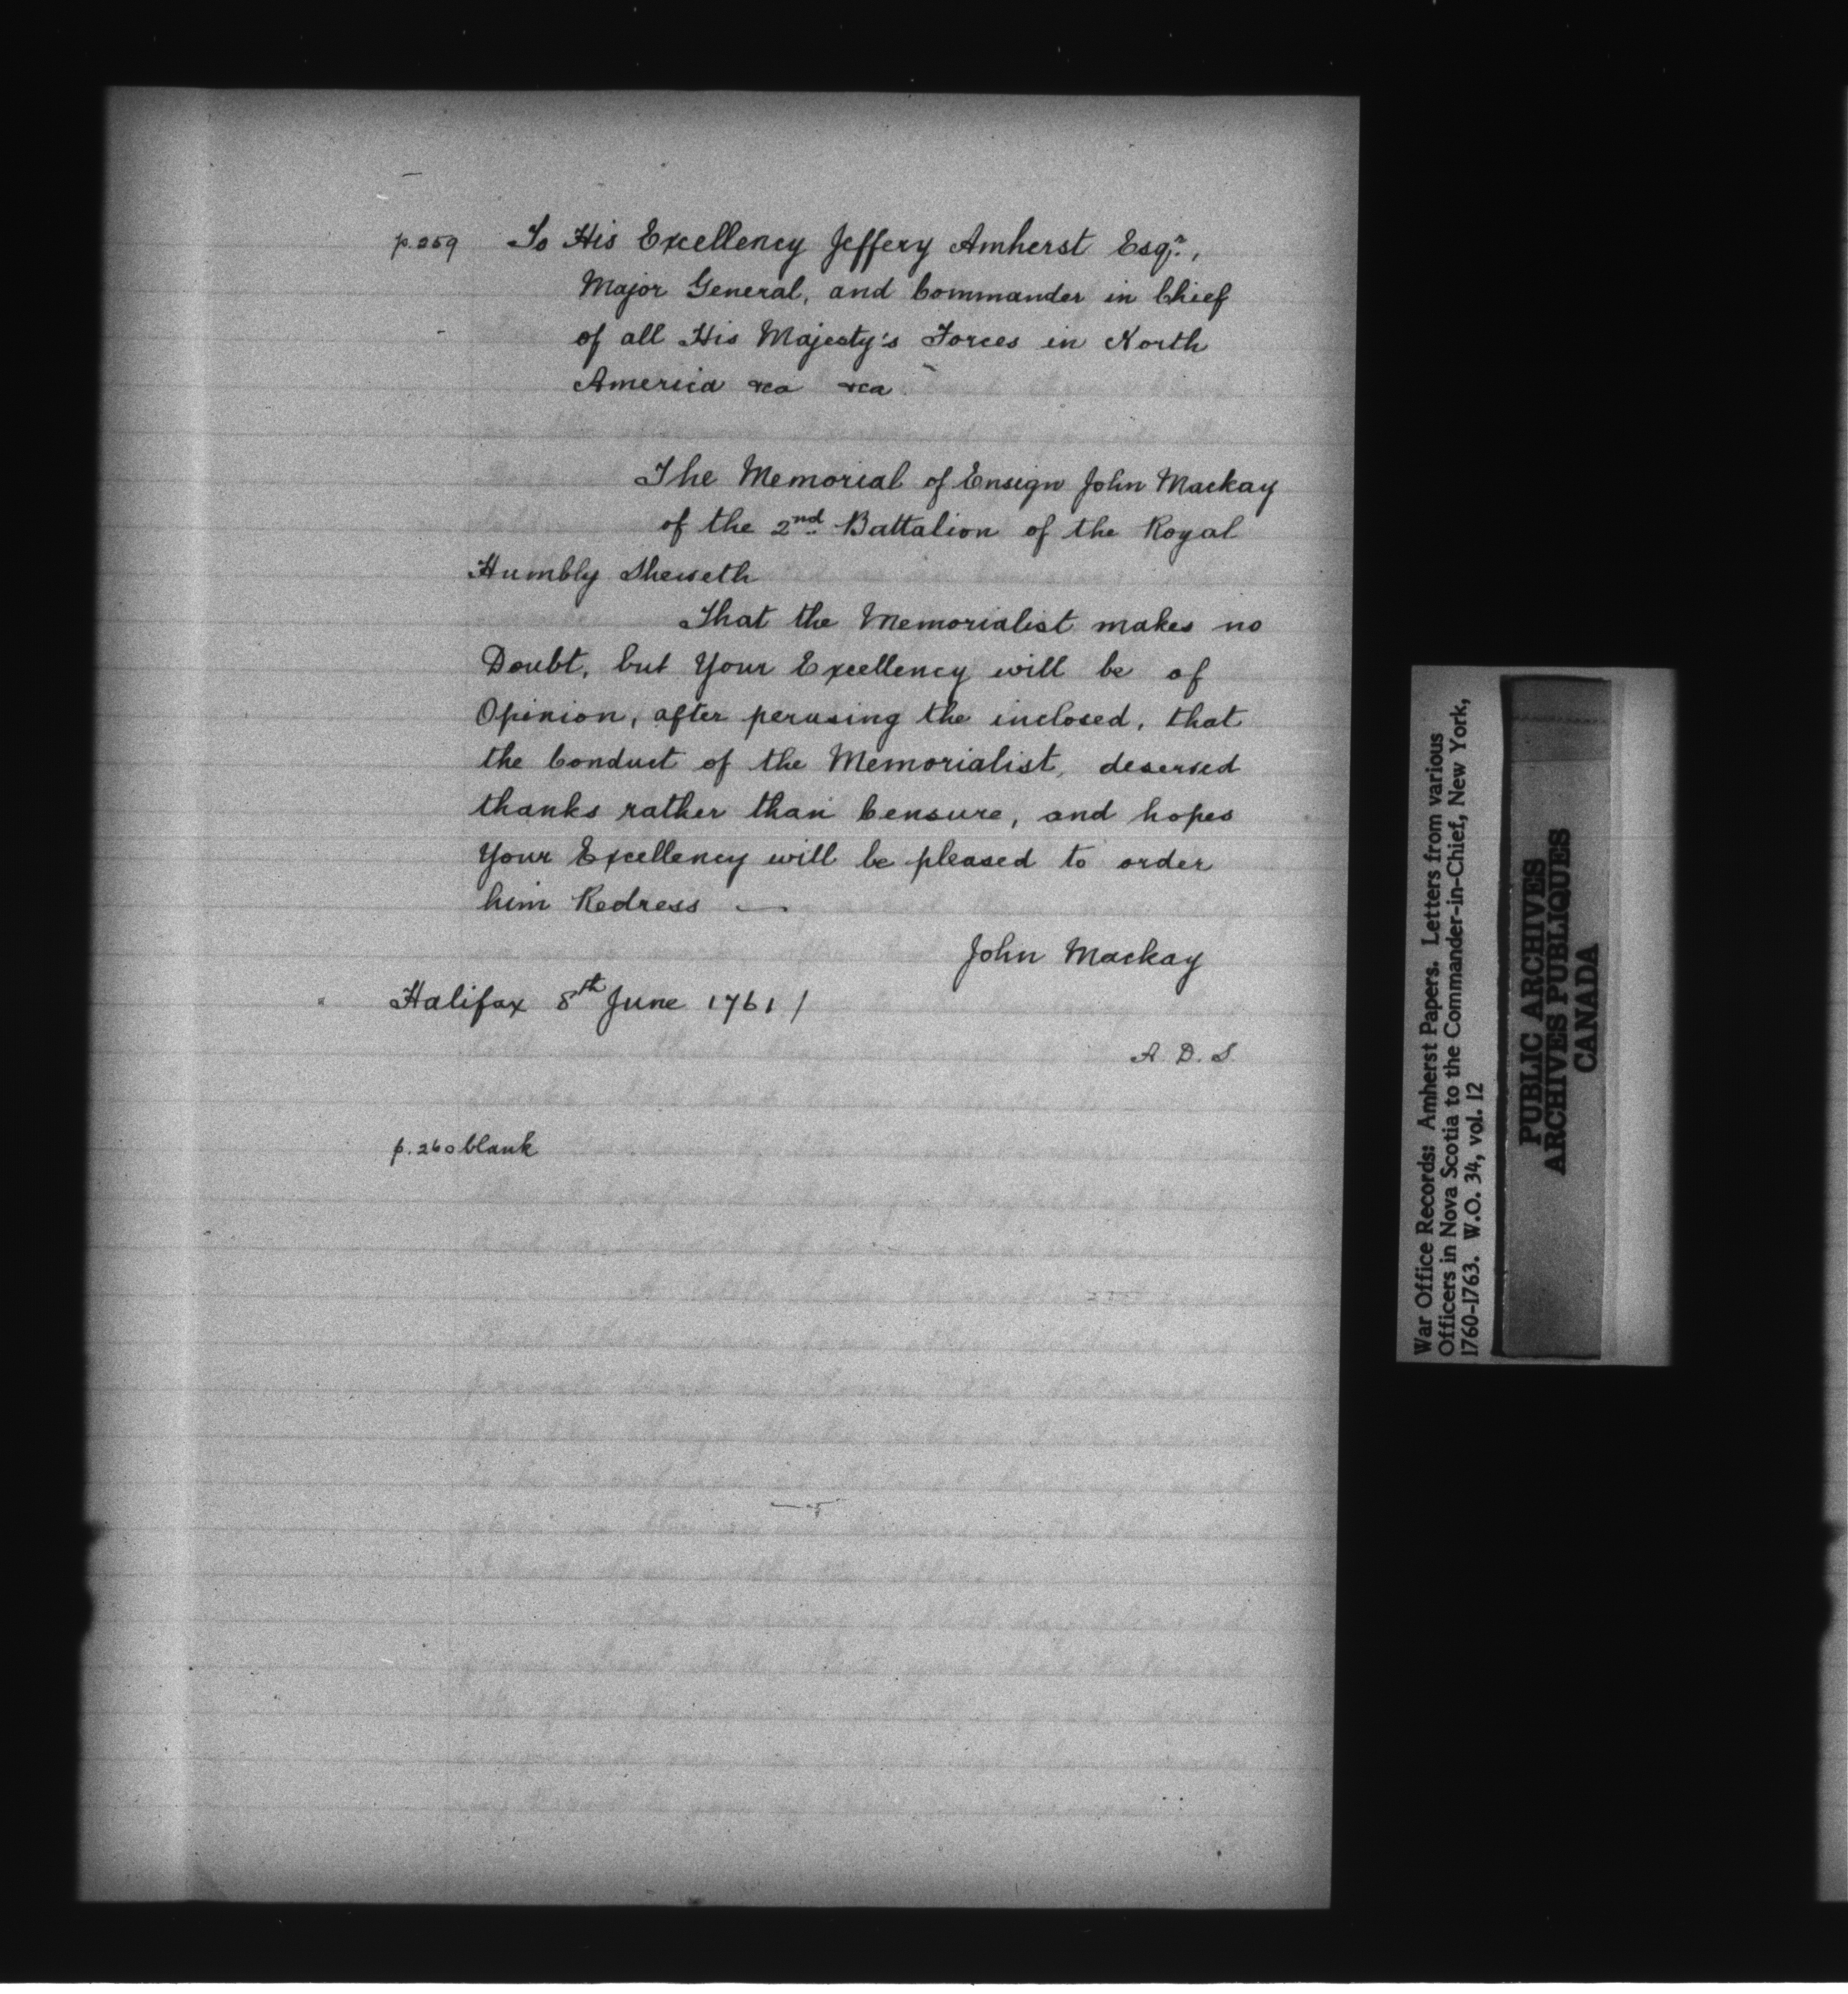 p.259 To His Excellency Jeffery Amherst Esqr.,
Major General, and Commander in Chief
of all His Majesty's Forces in North
America &ca &ca
The Memorial of Ensign John Mackay
of the 2nd Battalion of the Royal
Humbly Sheweth
That the Memorialist makes no
Doubt, but Your Excellency will be of
Opinion, after perusing the inclosed, that
the Conduct of the Memorialist, deserved
thanks rather than Censure, and hopes
Your Excellency will be pleased to order
him Redress —
John Mackay
Halifax 8th June 1761 /
A. D. S.
p. 260 blank
War Office Records: Amherst Papers. Letters from various
Officers in Nova Scotia to the Commander-in-Chief, New York,
1760-1763. W.O. 34, vol. 12
PUBLIC ARCHIVES
ARCHIVES PUBLIQUES
CANADA